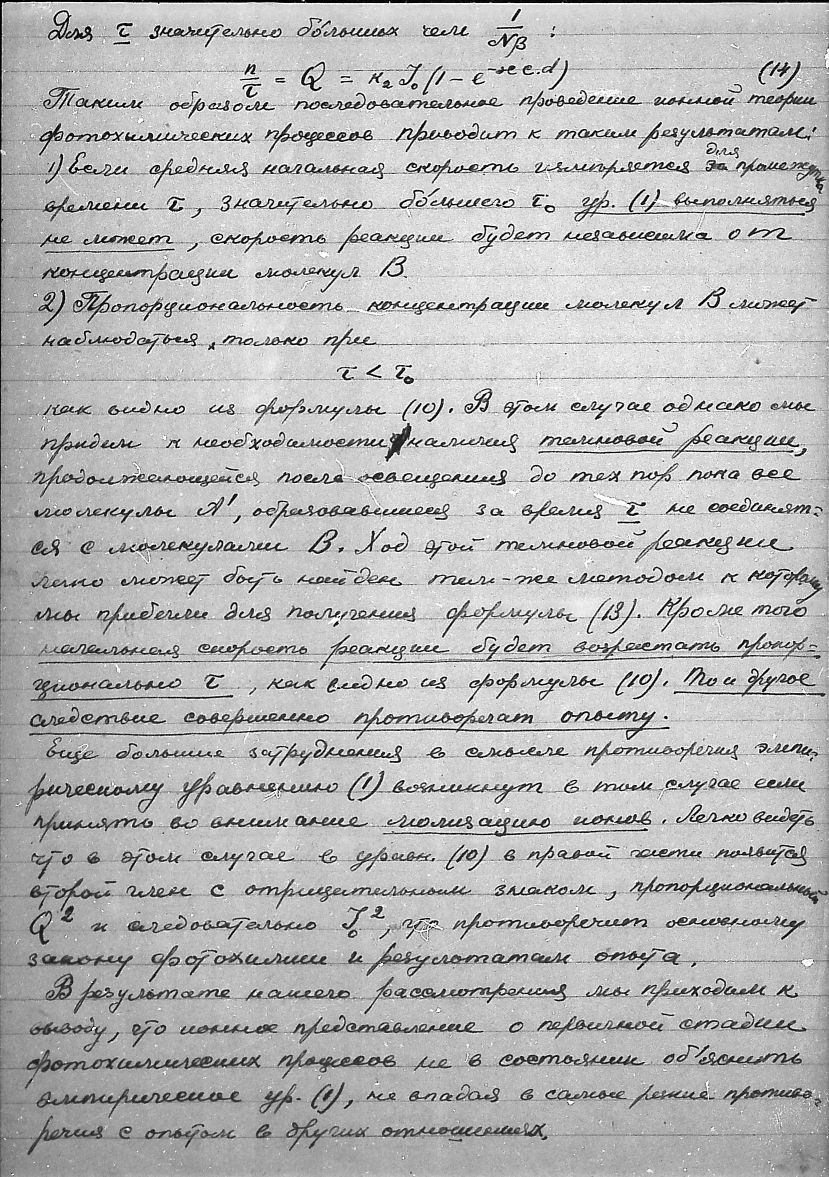 Для τ значительно бо́льших чем 1/Nβ :
n/τ = Q = κ₂ J₀ (1 − e^−ϰc.d) (14)
Таким образом последовательное проведение ионной теории
фотохимических процессов приводит к таким результатам:
1) Если средняя начальная скорость измеряется для промежутка
времени τ, значительно бо́льшего τ₀ ур. (1) выполняться
не может, скорость реакции будет независима от
концентрации молекул В.
2) Пропорциональность концентрации молекул В может
наблюдаться, только при
τ < τ₀
как видно из формулы (10). В этом случае однако мы
придем к необходимости наличия темновой реакции,
продолжающейся после освещения до тех пор пока все
молекулы А', образовавшиеся за время τ не соединят-
ся с молекулами В. Ход этой темновой реакции
легко может быть найден тем-же методом к которому
мы прибегли для получения формулы (13). Кроме того
начальная скорость реакции будет возрастать пропор-
ционально τ, как видно из формулы (10). То и другое
следствие совершенно противоречат опыту.
Еще большие затруднения в смысле противоречия эмпи-
рическому уравнению (1) возникнут в том случае если
принять во внимание молизацию ионов. Легко видеть
что в этом случае в уравн. (10) в правой части появится
второй член с отрицательным знаком, пропорциональный
Q² и следовательно J₀², что противоречит основному
закону фотохимии и результатам опыта.
В результате нашего рассмотрения мы приходим к
выводу, что ионное представление о первичной стадии
фотохимических процессов не в состоянии об'яснить
эмпирическое ур. (1), не впадая в самые резкие противо-
речия с опытом в других отношениях.